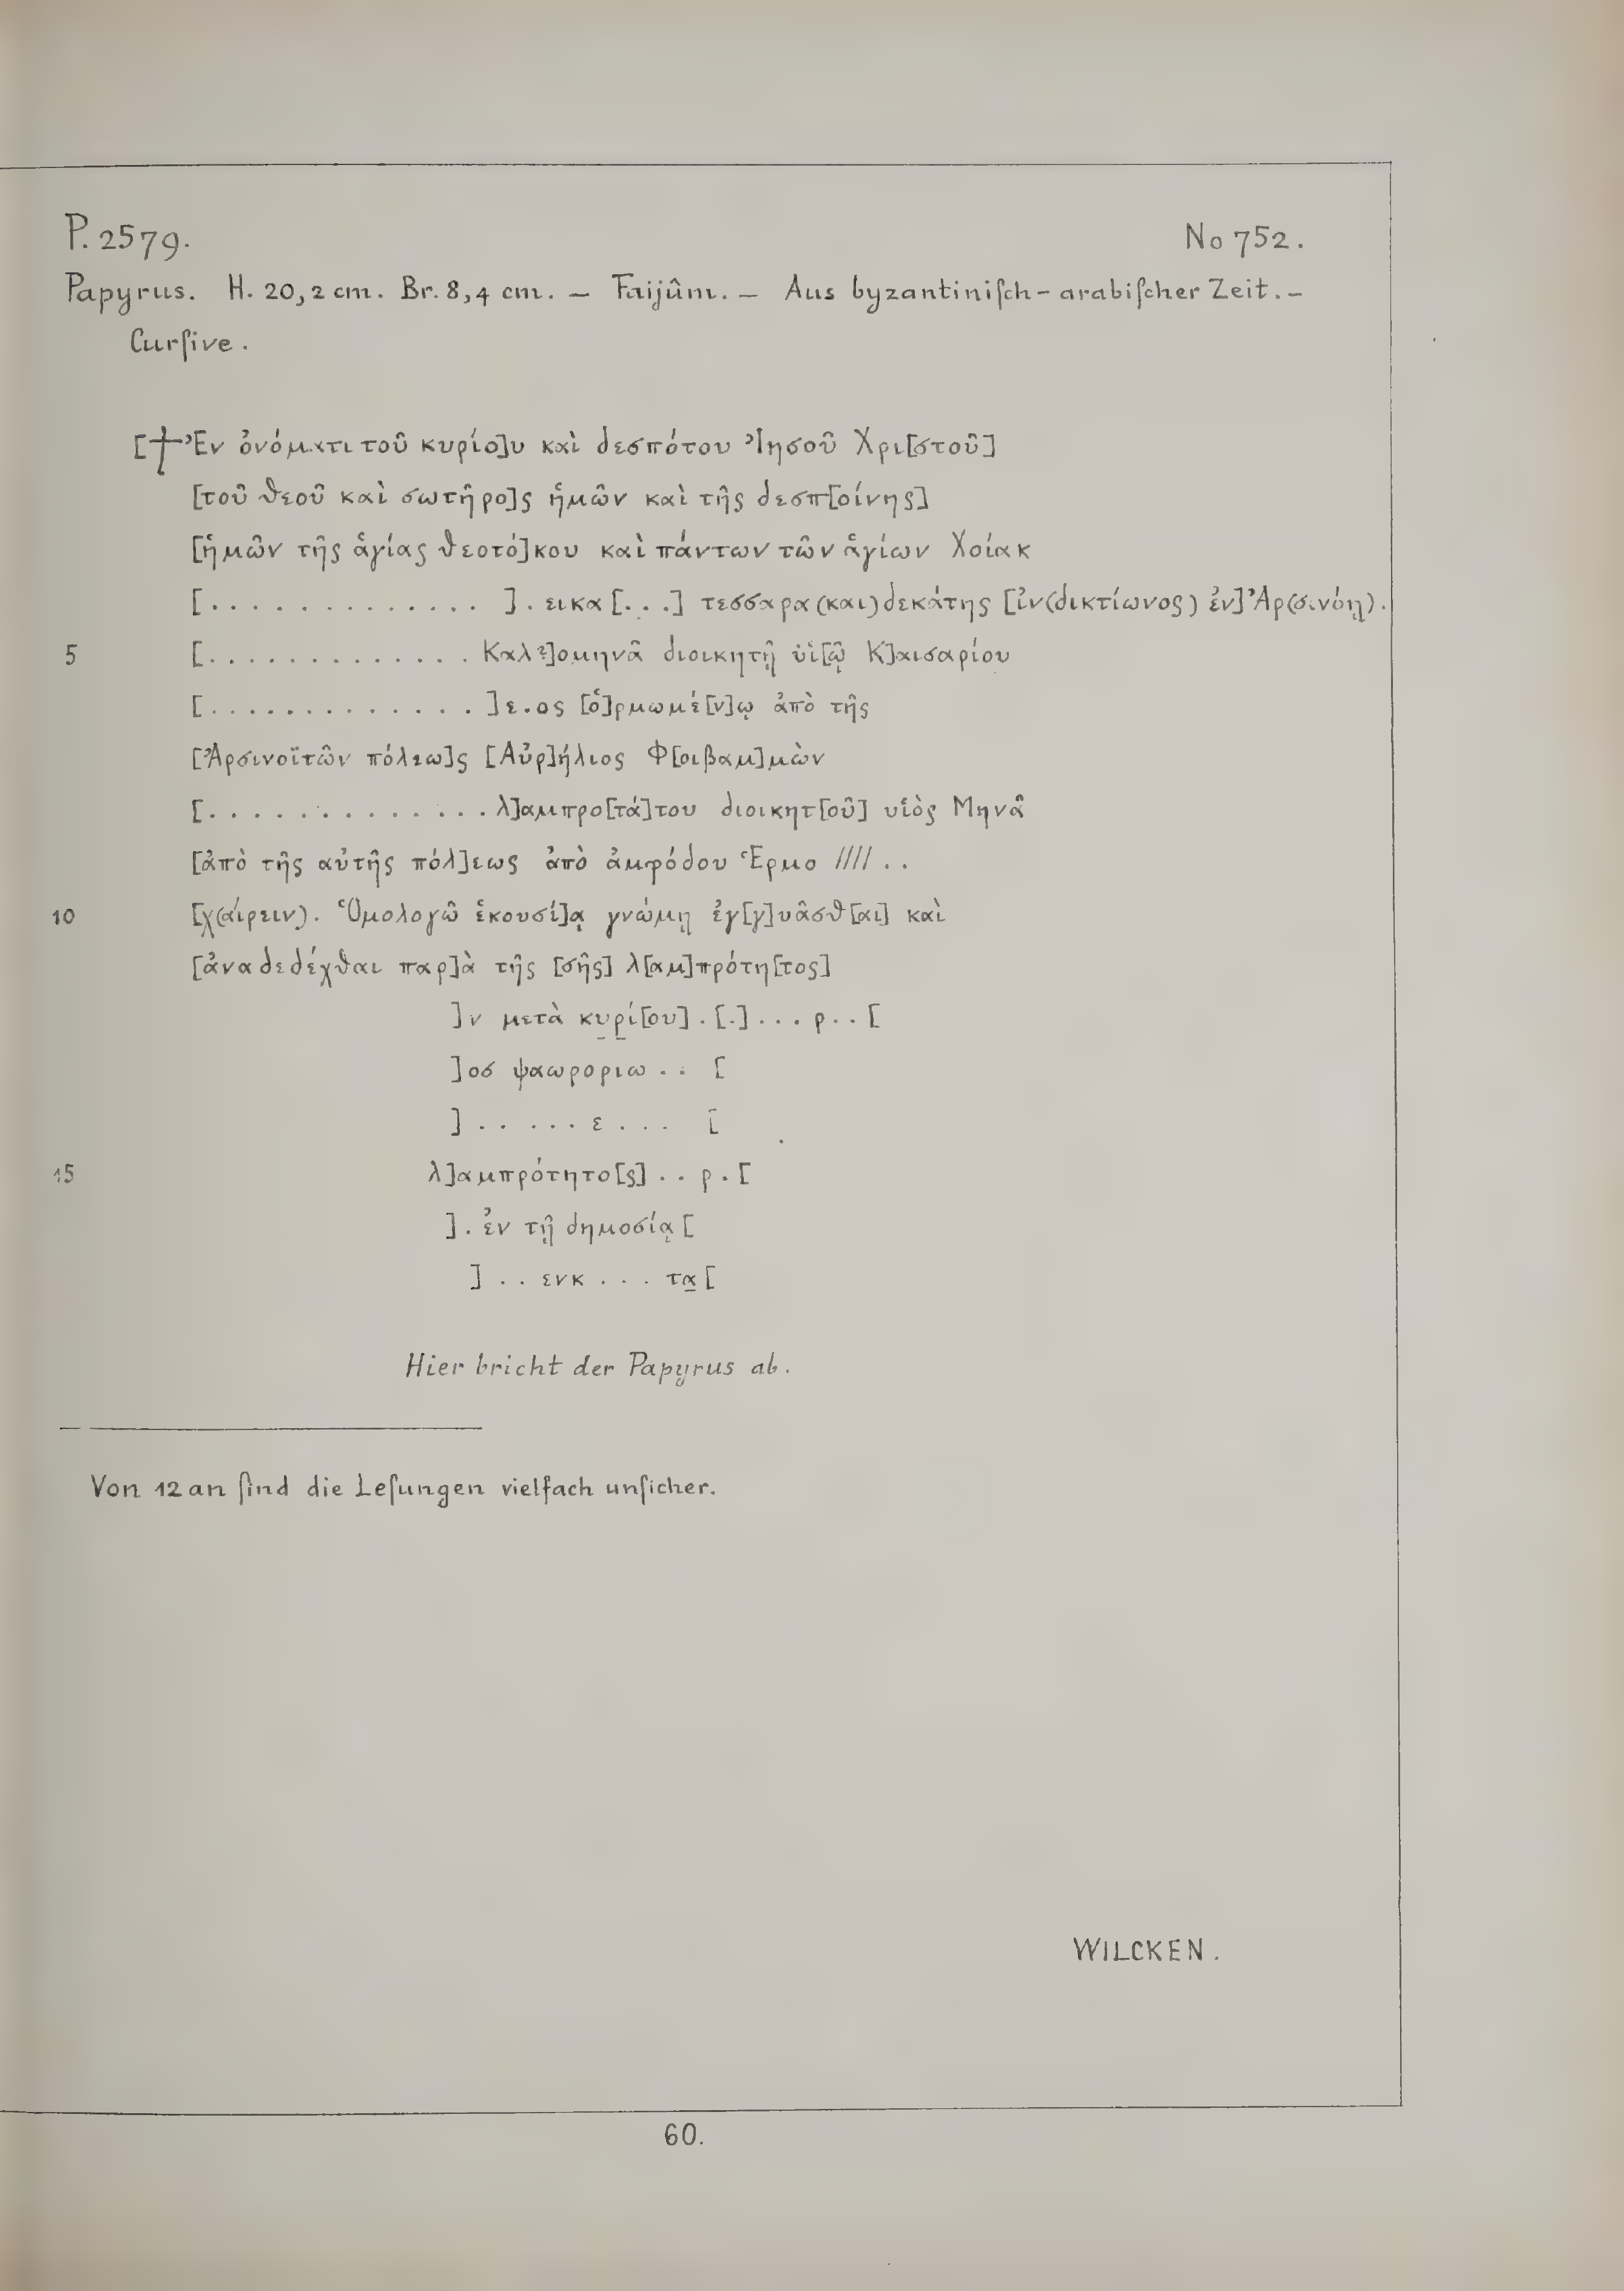 P. 2579. No 752.
Papyrus. H. 20,2 cm. Br. 8,4 cm. – Faijûm. – Aus byzantiniſch-arabiſcher Zeit. –
Curſive.
[† Ἐν ὀνόματι τοῦ κυρίο]υ καὶ δεσπότου Ἰησοῦ Χρι[στοῦ]
[τοῦ θεοῦ καὶ σωτῆρο]ς ἡμῶν καὶ τῆς δεσπ[οίνης]
[ἡμῶν τῆς ἁγίας θεοτό]κου καὶ πάντων τῶν ἁγίων Χοίακ
[. . . . . . . . . . . . . . . ] . εικα [. . .] τεσσαρα(και)δεκάτης [ἰν(δικτίωνος) ἐν] Ἀρ(σινόῃ).
5 [. . . . . . . . . . . . . . . Καλ?]ομηνᾶ διοικητῇ ὑἱ[ῷ Κ]αισαρίου
[. . . . . . . . . . . . . . . ]ε.ος [ὁ]ρμωμέ[ν]ῳ ἀπὸ τῆς
[Ἀρσινοϊτῶν πόλεω]ς [Αὐρ]ήλιος Φ[οιβαμ]μὼν
[. . . . . . . . . . . . . . . λ]αμπρο[τά]του διοικητ[οῦ] υἱὸς Μηνᾶ
[ἀπὸ τῆς αὐτῆς πόλ]εως ἀπὸ ἀμφόδου Ἑρμο //// . .
10 [χ(αίρειν). Ὁμολογῶ ἑκουσί]ᾳ γνώμῃ ἐγ[γ]υᾶσθ[αι] καὶ
[ἀναδεδέχθαι παρ]ὰ τῆς [σῆς] λ[αμ]πρότη[τος]
]ν μετὰ κυ̲ρ̲ί[ου] . [.] . . . ρ . . [
]οσ ψαωροριω . . [
] . . . . . . ε . . . [
15 λ]αμπρότητο[ς] . . ρ . [
] . ἐν τῇ δημοσίᾳ [
] . . ενκ . . . τα̲ [
Hier bricht der Papyrus ab.
Von 12 an ſind die Leſungen vielfach unſicher.
WILCKEN.
60.